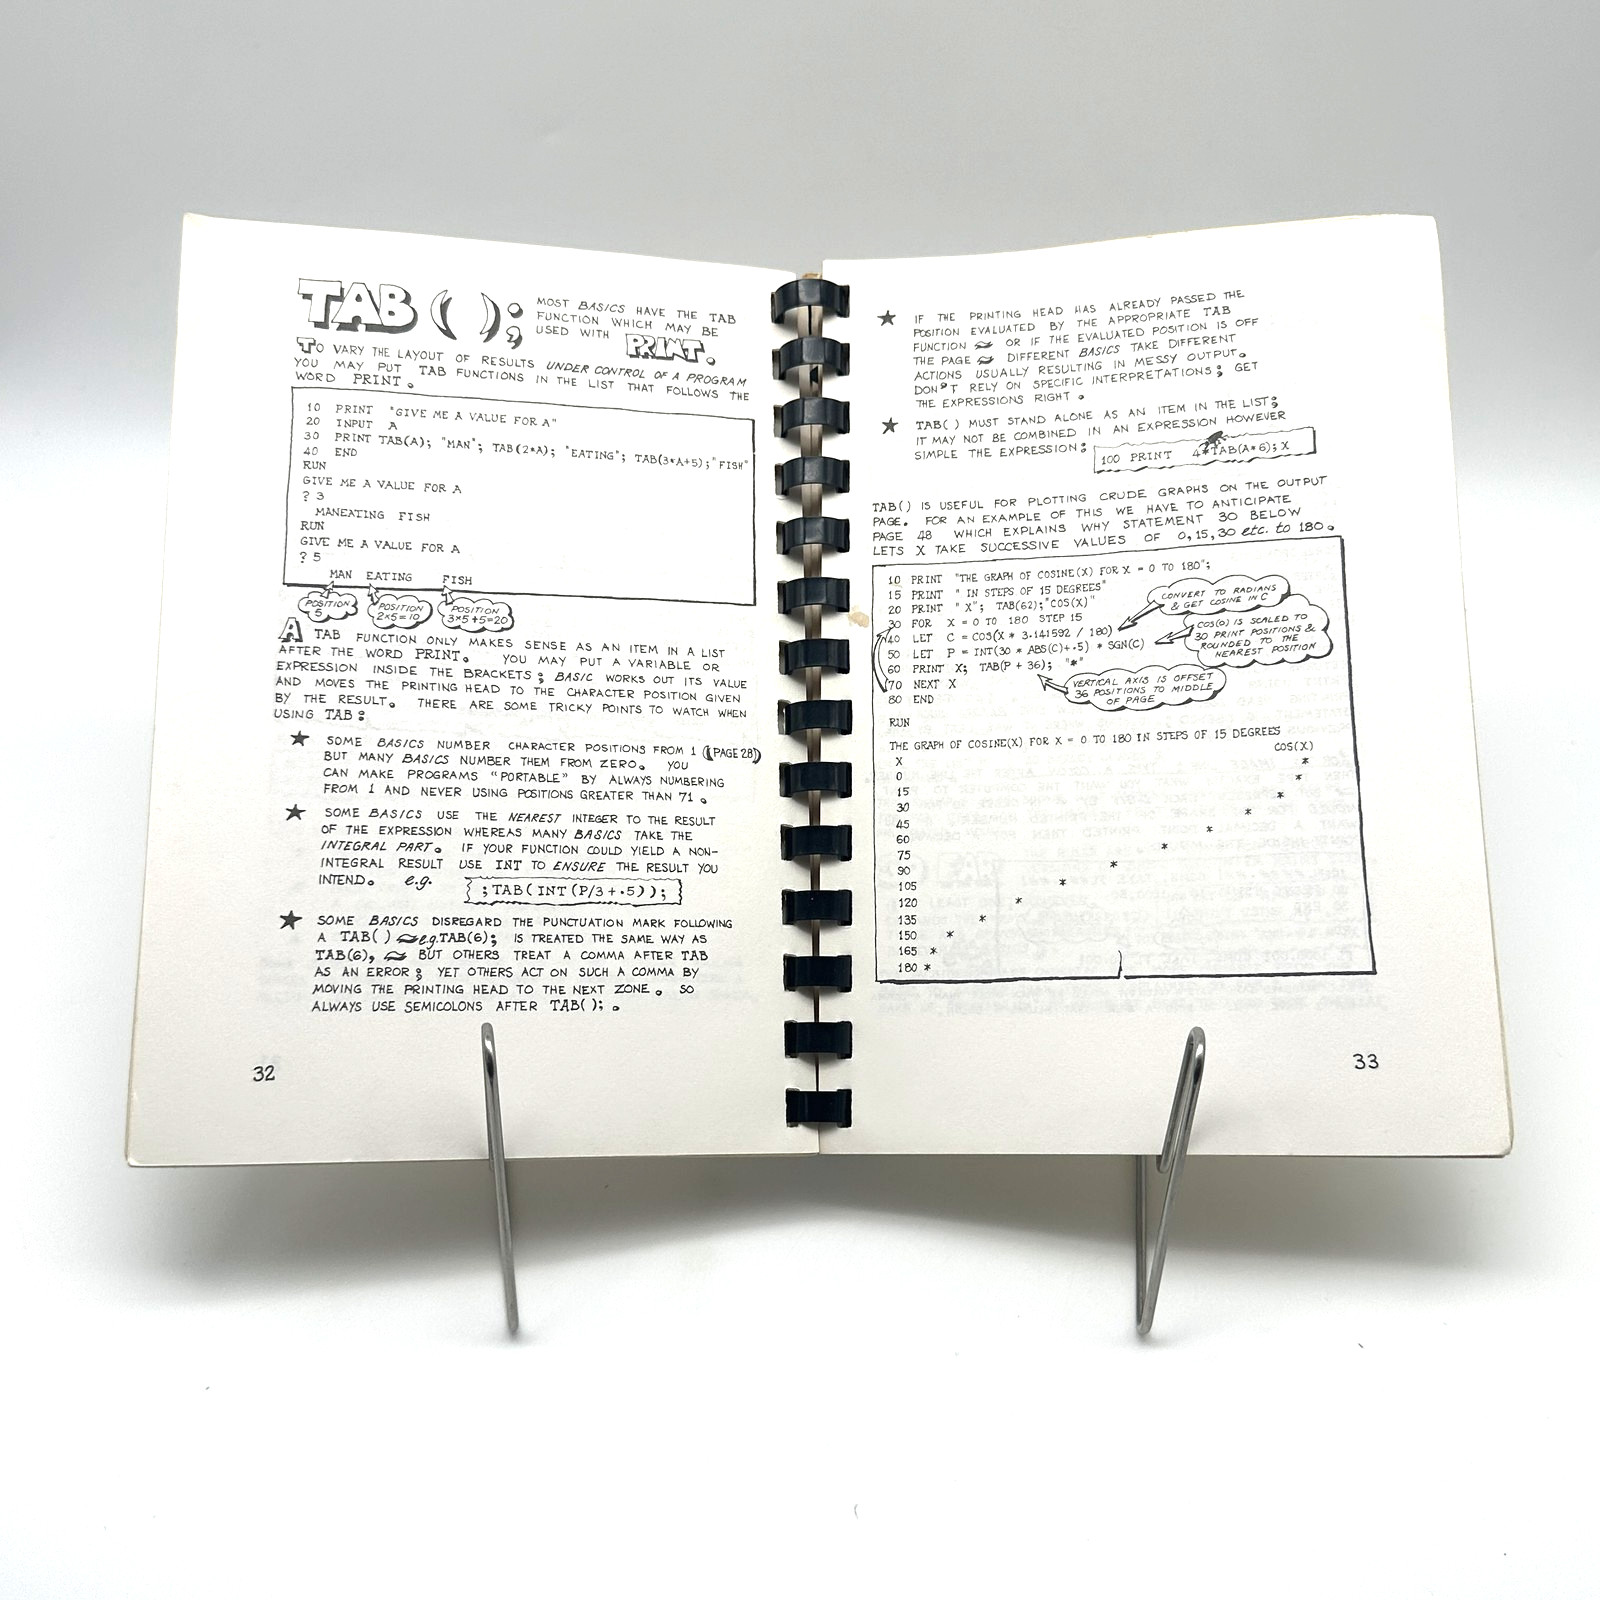 TAB ( );
MOST BASICS HAVE THE TAB
FUNCTION WHICH MAY BE
USED WITH PRINT.
TO VARY THE LAYOUT OF RESULTS UNDER CONTROL OF A PROGRAM
YOU MAY PUT TAB FUNCTIONS IN THE LIST THAT FOLLOWS THE
WORD PRINT.
10 PRINT "GIVE ME A VALUE FOR A"
20 INPUT A
30 PRINT TAB(A); "MAN"; TAB(2*A); "EATING"; TAB(3*A+5); "FISH"
40 END
RUN
GIVE ME A VALUE FOR A
? 3
MANEATING FISH
RUN
GIVE ME A VALUE FOR A
? 5
MAN EATING FISH
POSITION 5
POSITION 2×5=10
POSITION 3×5+5=20
A TAB FUNCTION ONLY MAKES SENSE AS AN ITEM IN A LIST
AFTER THE WORD PRINT. YOU MAY PUT A VARIABLE OR
EXPRESSION INSIDE THE BRACKETS; BASIC WORKS OUT ITS VALUE
AND MOVES THE PRINTING HEAD TO THE CHARACTER POSITION GIVEN
BY THE RESULT. THERE ARE SOME TRICKY POINTS TO WATCH WHEN
USING TAB:
★ SOME BASICS NUMBER CHARACTER POSITIONS FROM 1 (PAGE 28)
BUT MANY BASICS NUMBER THEM FROM ZERO. YOU
CAN MAKE PROGRAMS "PORTABLE" BY ALWAYS NUMBERING
FROM 1 AND NEVER USING POSITIONS GREATER THAN 71.
★ SOME BASICS USE THE NEAREST INTEGER TO THE RESULT
OF THE EXPRESSION WHEREAS MANY BASICS TAKE THE
INTEGRAL PART. IF YOUR FUNCTION COULD YIELD A NON-
INTEGRAL RESULT USE INT TO ENSURE THE RESULT YOU
INTEND. e.g. ;TAB(INT(P/3+.5));
★ SOME BASICS DISREGARD THE PUNCTUATION MARK FOLLOWING
A TAB( ) ~ e.g. TAB(6); IS TREATED THE SAME WAY AS
TAB(6), ~ BUT OTHERS TREAT A COMMA AFTER TAB
AS AN ERROR; YET OTHERS ACT ON SUCH A COMMA BY
MOVING THE PRINTING HEAD TO THE NEXT ZONE. SO
ALWAYS USE SEMICOLONS AFTER TAB( );.
32
★ IF THE PRINTING HEAD HAS ALREADY PASSED THE
POSITION EVALUATED BY THE APPROPRIATE TAB
FUNCTION ~ OR IF THE EVALUATED POSITION IS OFF
THE PAGE ~ DIFFERENT BASICS TAKE DIFFERENT
ACTIONS USUALLY RESULTING IN MESSY OUTPUT.
DON'T RELY ON SPECIFIC INTERPRETATIONS; GET
THE EXPRESSIONS RIGHT.
★ TAB( ) MUST STAND ALONE AS AN ITEM IN THE LIST;
IT MAY NOT BE COMBINED IN AN EXPRESSION HOWEVER
SIMPLE THE EXPRESSION: 100 PRINT 4*TAB(A*6); X
TAB( ) IS USEFUL FOR PLOTTING CRUDE GRAPHS ON THE OUTPUT
PAGE. FOR AN EXAMPLE OF THIS WE HAVE TO ANTICIPATE
PAGE 48 WHICH EXPLAINS WHY STATEMENT 30 BELOW
LETS X TAKE SUCCESSIVE VALUES OF 0, 15, 30 etc. to 180.
10 PRINT "THE GRAPH OF COSINE(X) FOR X = 0 TO 180";
15 PRINT " IN STEPS OF 15 DEGREES"
20 PRINT " X"; TAB(62); "COS(X)"
30 FOR X = 0 TO 180 STEP 15
40 LET C = COS(X * 3.141592 / 180)
50 LET P = INT(30 * ABS(C)+.5) * SGN(C)
60 PRINT X; TAB(P + 36); "*"
70 NEXT X
80 END
CONVERT TO RADIANS
& GET COSINE IN C
COS(0) IS SCALED TO
30 PRINT POSITIONS &
ROUNDED TO THE
NEAREST POSITION
VERTICAL AXIS IS OFFSET
36 POSITIONS TO MIDDLE
OF PAGE
RUN
THE GRAPH OF COSINE(X) FOR X = 0 TO 180 IN STEPS OF 15 DEGREES
X COS(X)
0 *
15 *
30 *
45 *
60 *
75 *
90 *
105 *
120 *
135 *
150 *
165 *
180 *
33